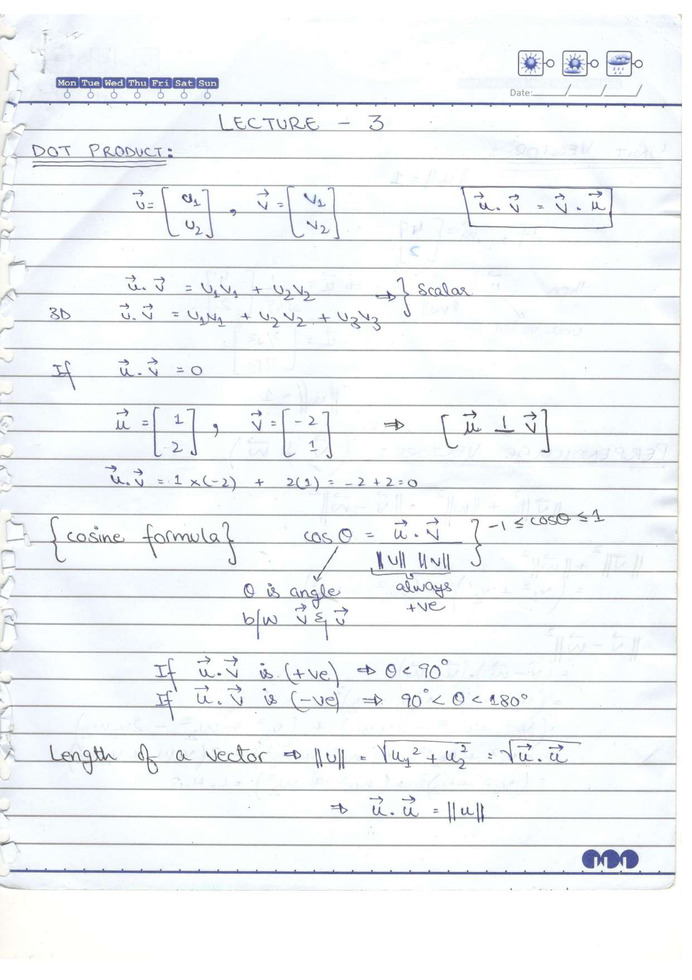 Mon Tue Wed Thu Fri Sat Sun
Date: / / /
LECTURE - 3
DOT PRODUCT:
u⃗ = [u1 u2] , v⃗ = [v1 v2] u⃗ . v⃗ = v⃗ . u⃗
u⃗ . v⃗ = u1v1 + u2v2 ⇒ } Scalar
3D u⃗ . v⃗ = u1v1 + u2v2 + u3v3
If u⃗ . v⃗ = 0
u⃗ = [1 2] , v⃗ = [-2 1] ⇒ [ u⃗ ⊥ v⃗ ]
u⃗ . v⃗ = 1 x (-2) + 2(1) = -2 + 2 = 0
{ cosine formula } cos θ = u⃗ . v⃗ / ||u|| ||v|| } -1 ≤ cosθ ≤ 1
θ is angle always
b/w v⃗ & u⃗ +ve
If u⃗ . v⃗ is (+ve) ⇒ θ < 90°
If u⃗ . v⃗ is (-ve) ⇒ 90° < θ < 180°
Length of a vector ⇒ ||u|| = √(u1² + u2²) = √(u⃗ . u⃗)
⇒ u⃗ . u⃗ = ||u||